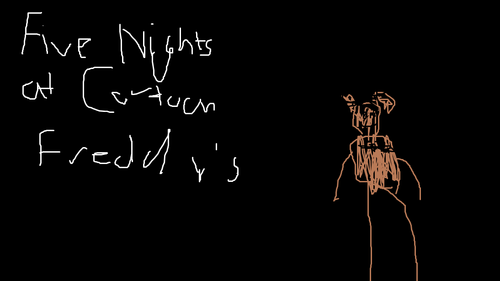 Five Nights
at Cartoon
Freddy's